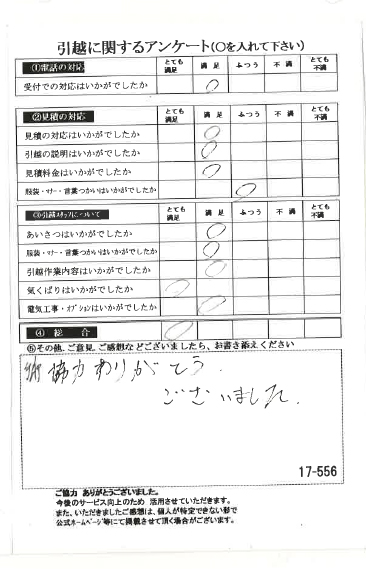 引越に関するアンケート(○を入れて下さい)
①電話の対応 とても満足 満足 ふつう 不満 とても不満
受付での対応はいかがでしたか
②見積の対応 とても満足 満足 ふつう 不満 とても不満
見積の対応はいかがでしたか
引越の説明はいかがでしたか
見積料金はいかがでしたか
服装・マナー・言葉つかいはいかがでしたか
③引越スタッフについて とても満足 満足 ふつう 不満 とても不満
あいさつはいかがでしたか
服装・マナー・言葉つかいはいかがでしたか
引越作業内容はいかがでしたか
気くばりはいかがでしたか
電気工事・オプションはいかがでしたか
④ 総 合
⑤その他、ご意見、ご感想などございましたら、お書き添えください
御協力ありがとう
ございました。
17-556
ご協力 ありがとうございました。
今後のサービス向上のため 活用させていただきます。
また、いただきましたご感想は、個人が特定できない形で
公式ホームページ等にて掲載させて頂く場合がございます。